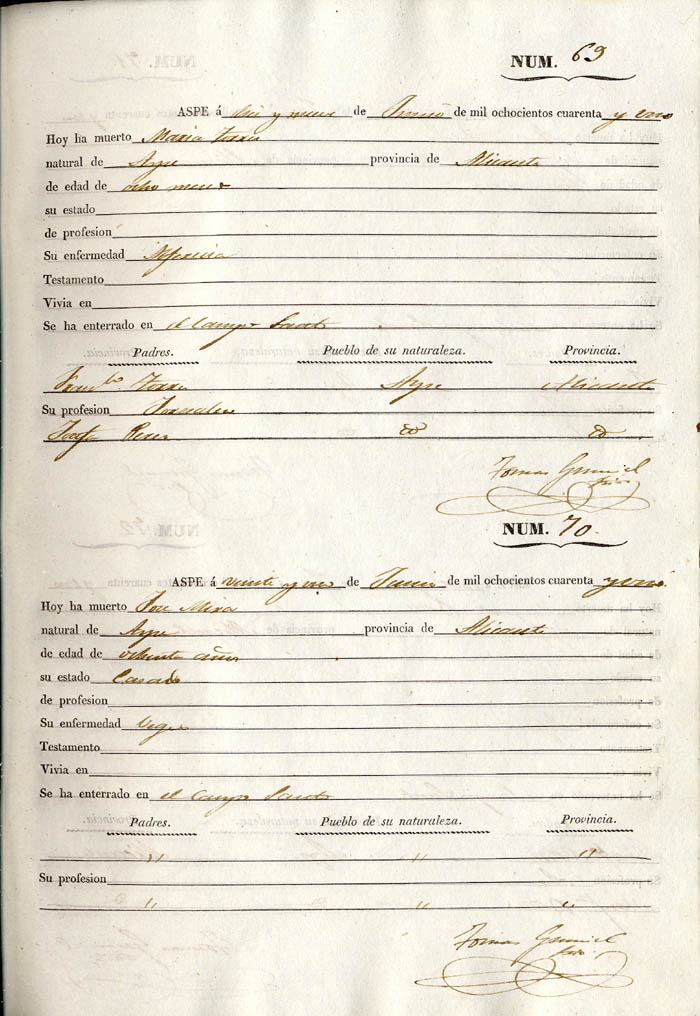 NUM. 69
ASPE á diez y nueve de Junio de mil ochocientos cuarenta y uno
Hoy ha muerto Maria Torres
natural de Aspe provincia de Alicante
de edad de ocho meses
su estado
de profesion
Su enfermedad
Testamento
Vivia en
Se ha enterrado en el Campo Santo
Padres. Pueblo de su naturaleza. Provincia.
Franco. Torres Aspe Alicante
Su profesion Jornalero
Josefa Perez
Tomas
NUM. 70
ASPE á veinte y uno de Junio de mil ochocientos cuarenta y uno
Hoy ha muerto Jose Mira
natural de Aspe provincia de Alicante
de edad de ochenta años
su estado Casado
de profesion
Su enfermedad
Testamento
Vivia en
Se ha enterrado en el Campo Santo
Padres. Pueblo de su naturaleza. Provincia.
" " "
Su profesion
" " "
Tomas